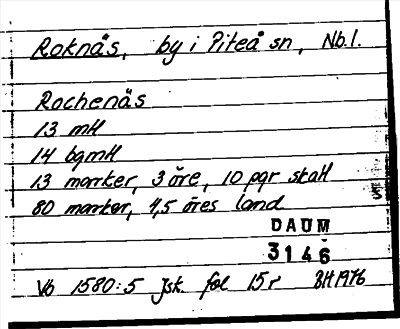 Roknäs, by i Piteå sn, Nb.l.
Rochenäs
13 mH
14 bgmH
13 marker, 3 öre, 10 pgr skatt
80 marker, 4,5 öres land
DAUM
3146
Vb 1580:5 Jsk. fol 15r BH 1976